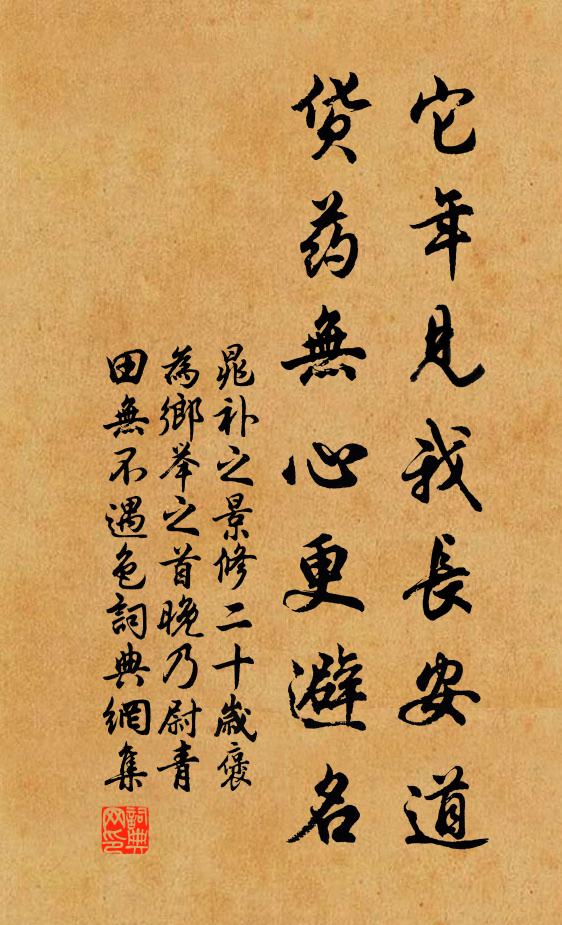 它年見我長安道
货药無心更避名
晁补之景修二十歲褎
為鄉举之首晚乃尉青
田無不遇色詞典網集
詞典网印